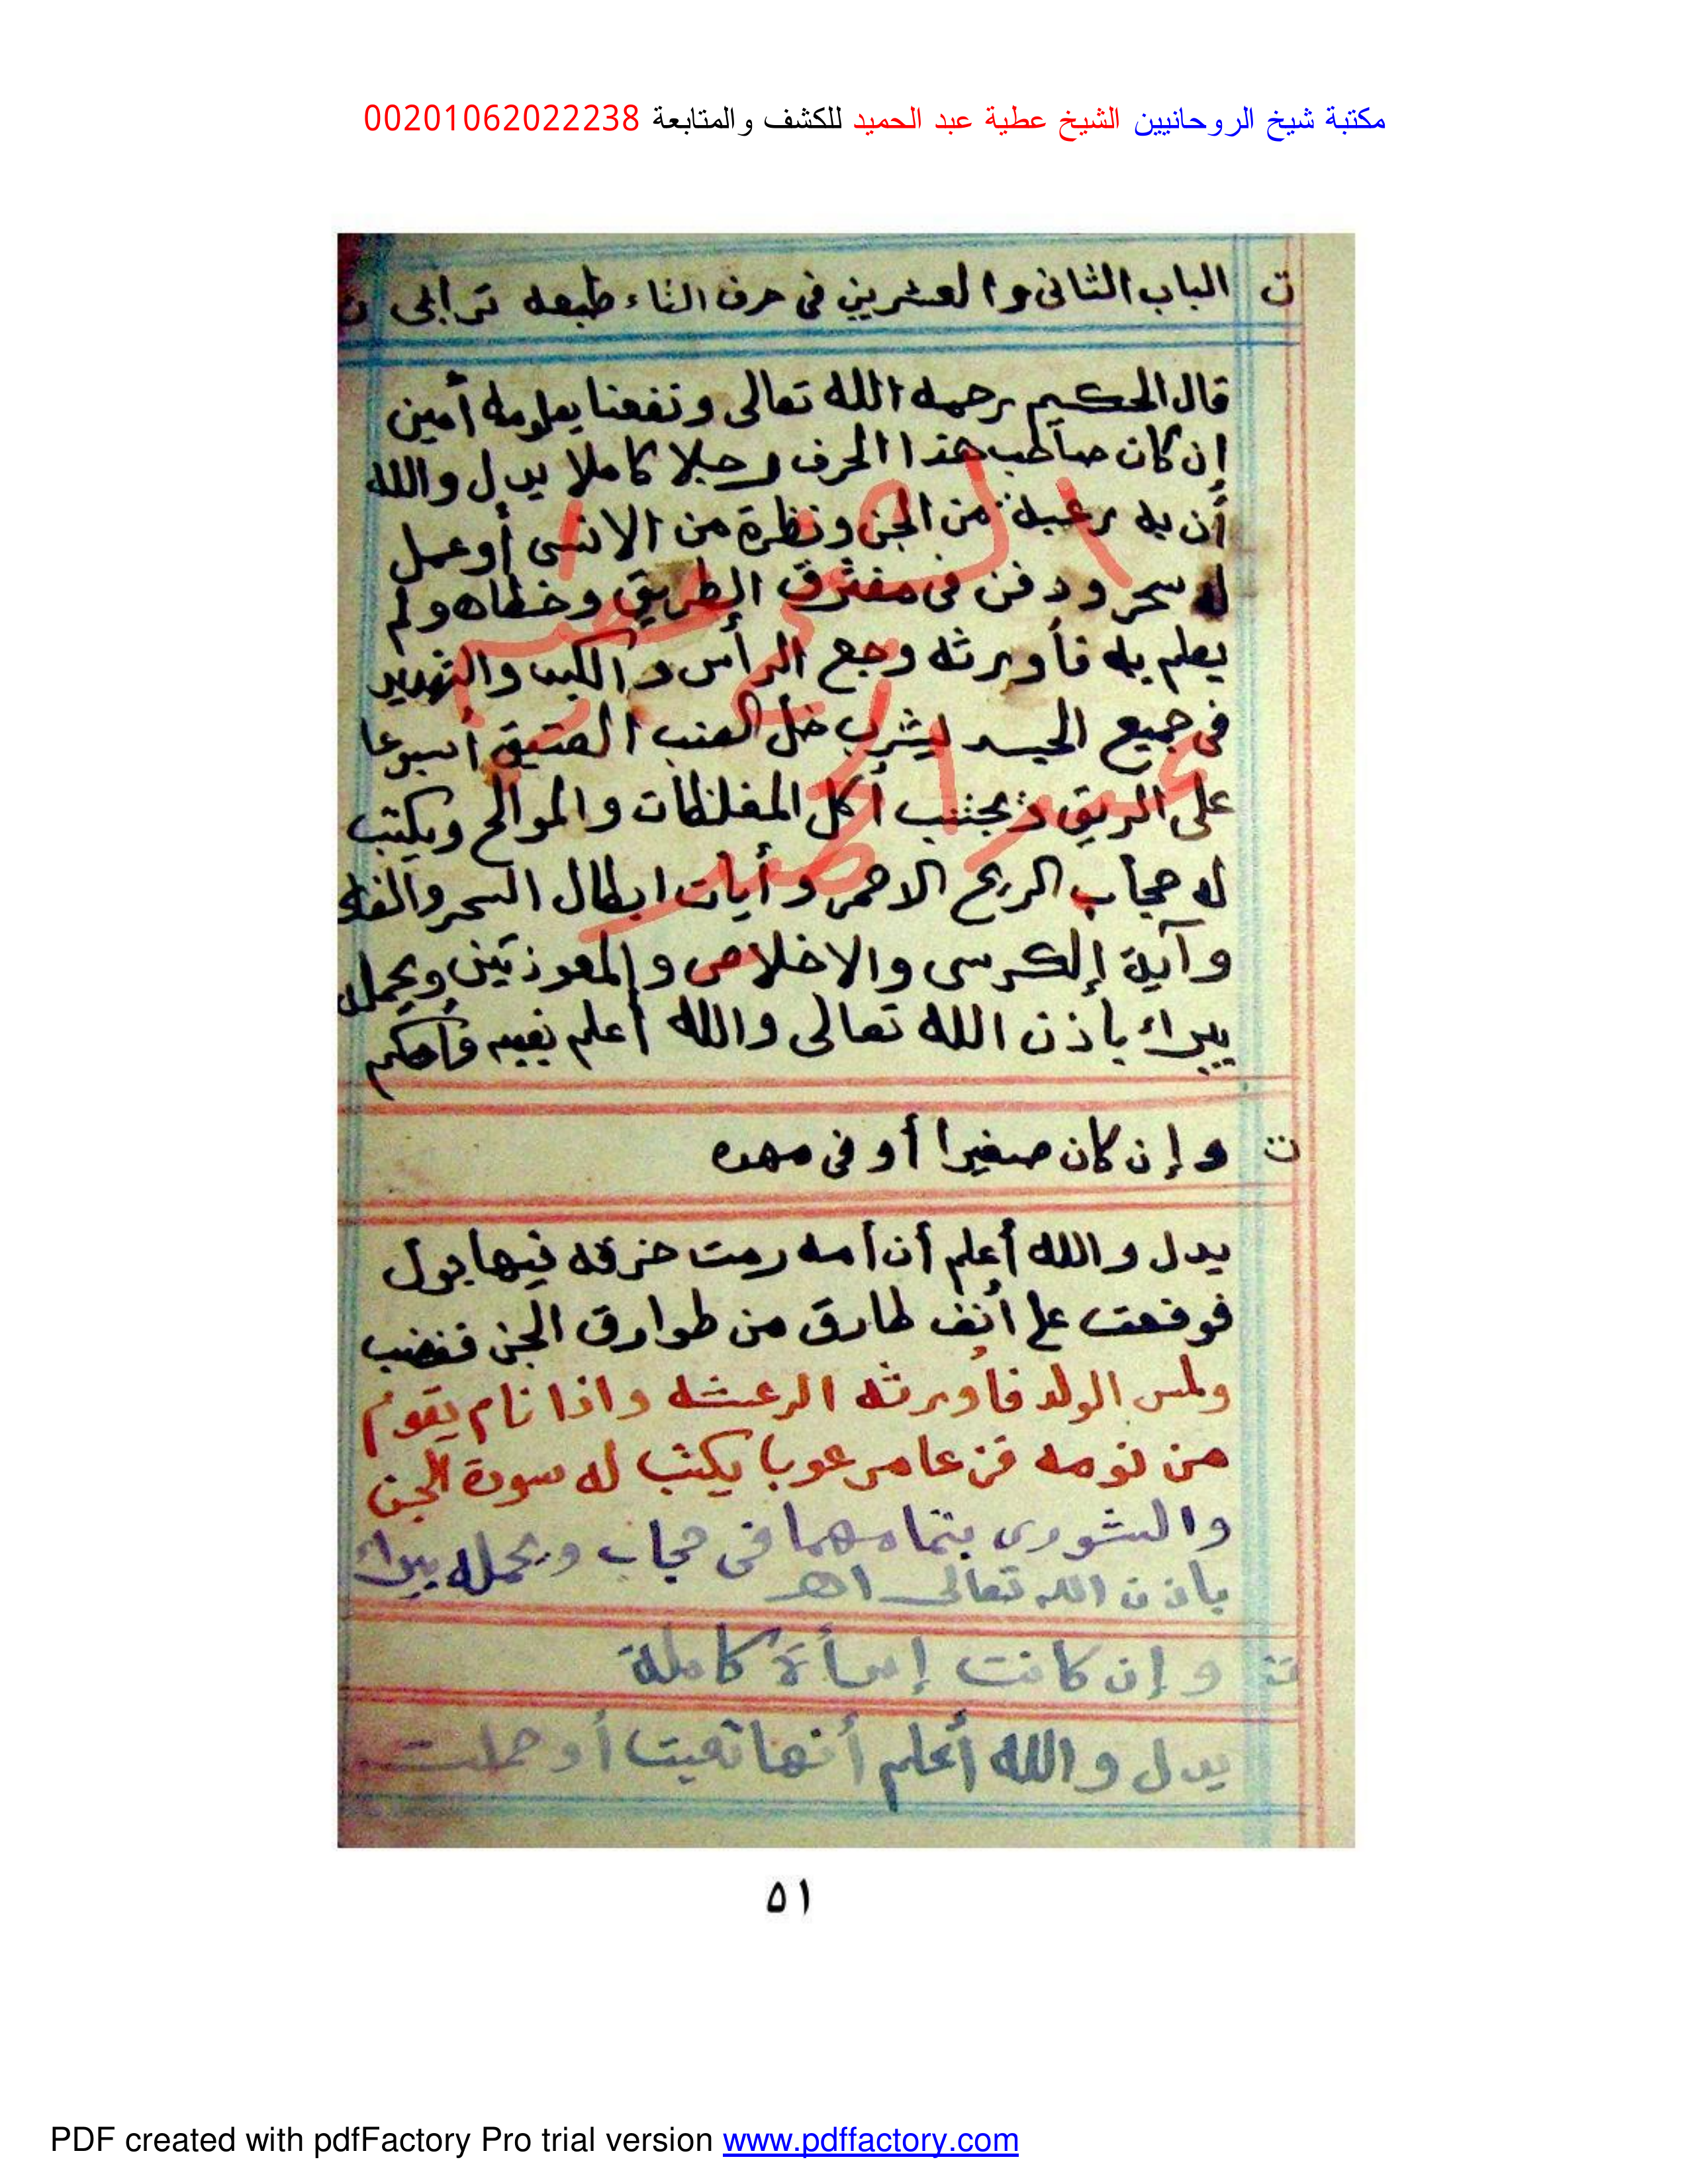 مكتبة شيخ الروحانيين الشيخ عطية عبد الحميد للكشف والمتابعة 00201062022238
ت الباب الثانى والعشرين فى حرف التاء طبعه ترابى ت
قال الحكيم رحمه الله تعالى ونفعنا بعلومه أمين
إن كان صاحب هذا الحرف رجلا كاملا يدل والله
أن به رعبة من الجن ونظرة من الانسى أو عمل
له سحر ودفن فى مفترق الطريق وخطاه ولم
يعلم به فأورثه وجع الرأس والكبد والتهديد
فى جميع الجسد ليشرب خل العنب العتيق أسبوعا
على الريق ويجتنب أكل المغلظات والموالح ويكتب
له حجاب الريح الاحمر وأيات ابطال السحر
وآية الكرسى والاخلاص والمعوذتين ويحمله
يبراء باذن الله تعالى والله أعلم بغيبه وأحكم
ت وإن كان صغيرا أو فى مهده
يدل والله أعلم أن أمه رمت خرقه فيها بول
فوقعت على أنف طارق من طوارق الجن فغضب
ولمس الولد فأورثه الرعشه واذا نام يقوم
من نومه فزعا مرعوبا يكتب له سورة الجن
والشورى بتمامهما فى حجاب ويحمله يبراء
باذن الله تعالى اهـ
ت وإن كانت إمرأة كاملة
يدل والله أعلم أنها تعبت أو حملت
الشيخ عطية
عبد الحميد
٥١
PDF created with pdfFactory Pro trial version www.pdffactory.com